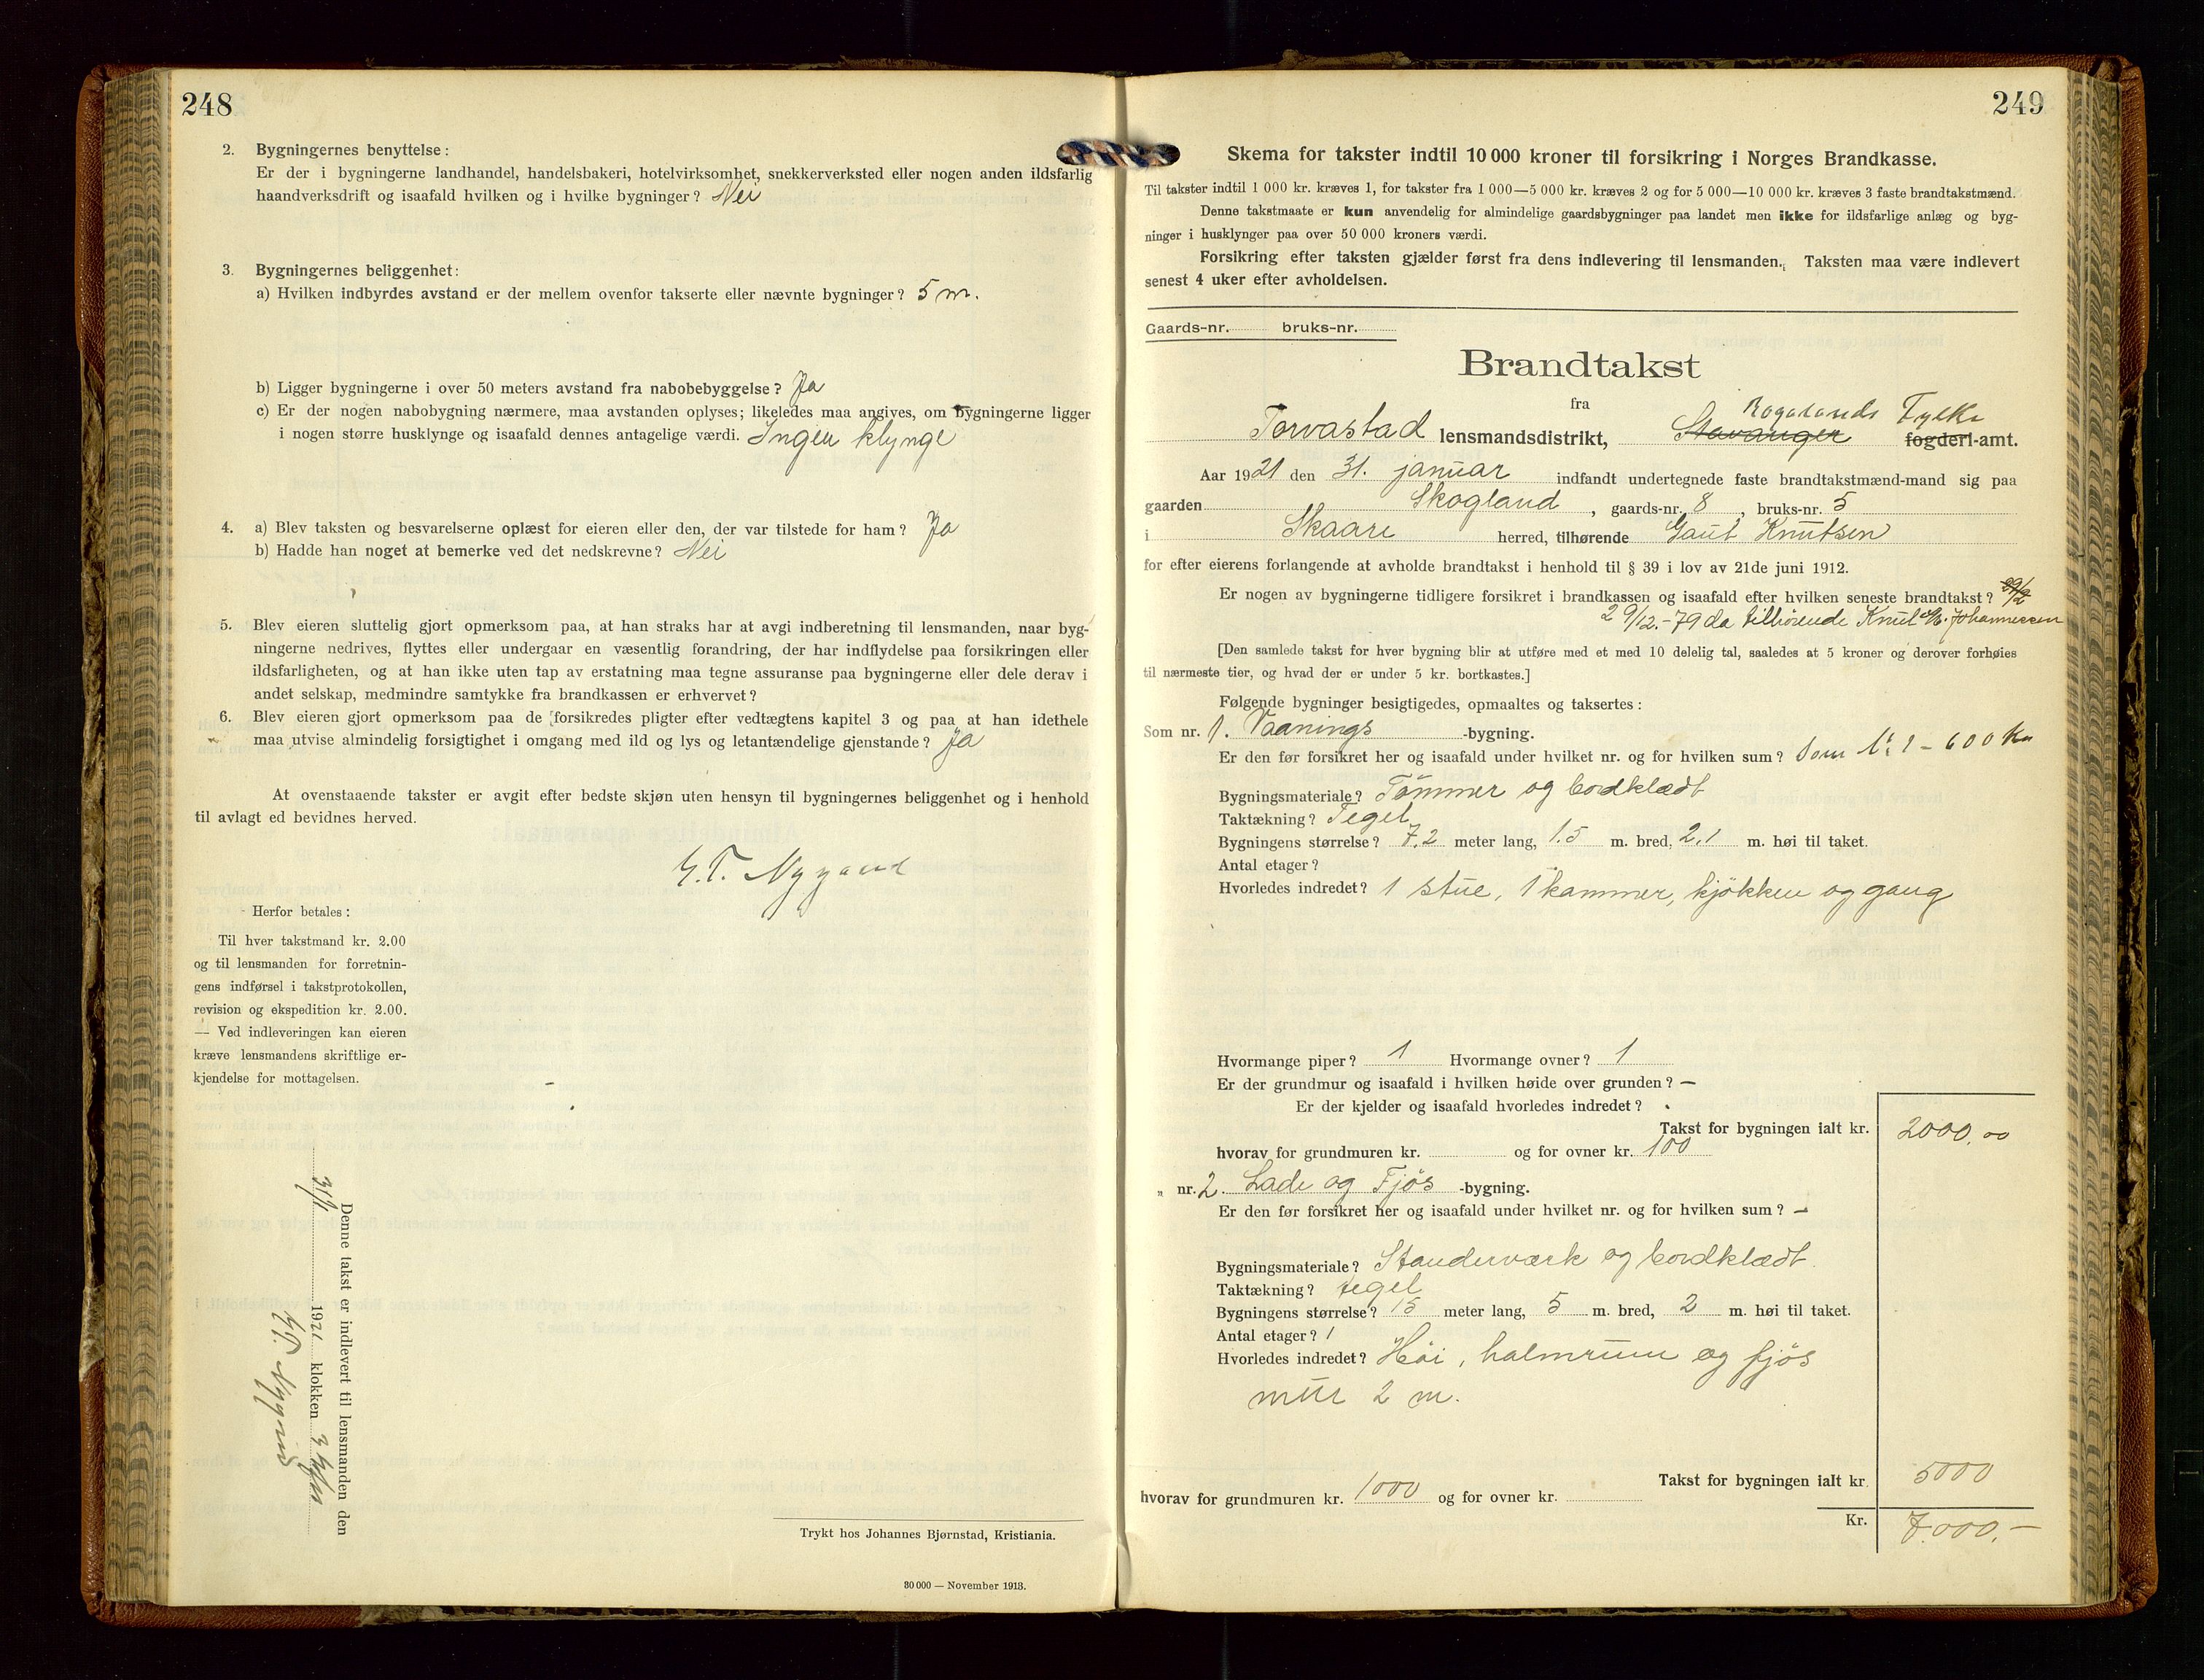 248
2. Bygningernes benyttelse:
Er der i bygningerne landhandel, handelsbakeri, hotelvirksomhet, snekkerverksted eller nogen anden ildsfarlig
haandverksdrift og isaafald hvilken og i hvilke bygninger? Nei
3. Bygningernes beliggenhet:
a) Hvilken indbyrdes avstand er der mellem ovenfor takserte eller nævnte bygninger? 5 m.
b) Ligger bygningerne i over 50 meters avstand fra nabobebyggelse? Ja
c) Er der nogen nabobygning nærmere, maa avstanden oplyses; likeledes maa angives, om bygningerne ligger
i nogen større husklynge og isaafald dennes antagelige værdi. Ingen klynge
4. a) Blev taksten og besvarelserne oplæst for eieren eller den, der var tilstede for ham? Ja
b) Hadde han noget at bemerke ved det nedskrevne? Nei
5. Blev eieren sluttelig gjort opmerksom paa, at han straks har at avgi indberetning til lensmanden, naar byg-
ningerne nedrives, flyttes eller undergaar en væsentlig forandring, der har indflydelse paa forsikringen eller
ildsfarligheten, og at han ikke uten tap av erstatning maa tegne assuranse paa bygningerne eller dele derav i
andet selskap, medmindre samtykke fra brandkassen er erhvervet?
6. Blev eieren gjort opmerksom paa de forsikredes pligter efter vedtægtens kapitel 3 og paa at han idethele
maa utvise almindelig forsigtighet i omgang med ild og lys og letantændelige gjenstande? Ja
At ovenstaaende takster er avgit efter bedste skjøn uten hensyn til bygningernes beliggenhet og i henhold
til avlagt ed bevidnes herved.
Herfor betales:
Til hver takstmand kr. 2.00
og til lensmanden for forretnin-
gens indførsel i takstprotokollen,
revision og ekspedition kr. 2.00.
— Ved indleveringen kan eieren
kræve lensmandens skriftlige er-
kjendelse for mottagelsen.
Denne takst er indlevert til lensmanden den
31/1 1921 klokken 3
Trykt hos Johannes Bjørnstad, Kristiania.
30 000 — November 1913.
249
Skema for takster indtil 10 000 kroner til forsikring i Norges Brandkasse.
Til takster indtil 1 000 kr. kræves 1, for takster fra 1 000—5 000 kr. kræves 2 og for 5 000—10 000 kr. kræves 3 faste brandtakstmænd.
Denne takstmaate er kun anvendelig for almindelige gaardsbygninger paa landet men ikke for ildsfarlige anlæg og byg-
ninger i husklynger paa over 50 000 kroners værdi.
Forsikring efter taksten gjælder først fra dens indlevering til lensmanden. Taksten maa være indlevert
senest 4 uker efter avholdelsen.
Gaards-nr. bruks-nr.
Brandtakst
fra
Rogalands Fylke
Torvastad lensmandsdistrikt, Stavanger fogderi-amt.
Aar 1921 den 31. januar indfandt undertegnede faste brandtakstmænd-mand sig paa
gaarden Skogland, gaards-nr. 8, bruks-nr. 5
i Skaare herred, tilhørende Gaut Knutsen
for efter eierens forlangende at avholde brandtakst i henhold til § 39 i lov av 21de juni 1912.
Er nogen av bygningerne tidligere forsikret i brandkassen og isaafald efter hvilken seneste brandtakst?
29/12.-79 da tilhørende Knut Johannessen
[Den samlede takst for hver bygning blir at utføre med et med 10 delelig tal, saaledes at 5 kroner og derover forhøies
til nærmeste tier, og hvad der er under 5 kr. bortkastes.]
Følgende bygninger besigtigedes, opmaaltes og taksertes:
Som nr. 1. Vaanings -bygning.
Er den før forsikret her og isaafald under hvilket nr. og for hvilken sum? Som 1 - 600 Kr
Bygningsmateriale? Tömmer og bordklædt
Taktækning? Tegel
Bygningens størrelse? 7.2 meter lang, 1.5 m. bred, 2.1 m. høi til taket.
Antal etager?
Hvorledes indredet? 1 stue, 1 kammer, kjökken og gang
Hvormange piper? 1 Hvormange ovner? 1
Er der grundmur og isaafald i hvilken høide over grunden? —
Er der kjelder og isaafald hvorledes indredet?
Takst for bygningen ialt kr. 2000.00
hvorav for grundmuren kr. og for ovner kr. 100
„ nr. 2. Lade og Fjös -bygning.
Er den før forsikret her og isaafald under hvilket nr. og for hvilken sum? —
Bygningsmateriale? Standerværk og bordklædt.
Taktækning? tegel
Bygningens størrelse? 15 meter lang, 5 m. bred, 2 m. høi til taket.
Antal etager? 1
Hvorledes indredet? Höi, halmrum og fjös
mur 2 m.
Takst for bygningen ialt kr. 5000
hvorav for grundmuren kr. 1000 og for ovner kr.
Kr. 7.000,-